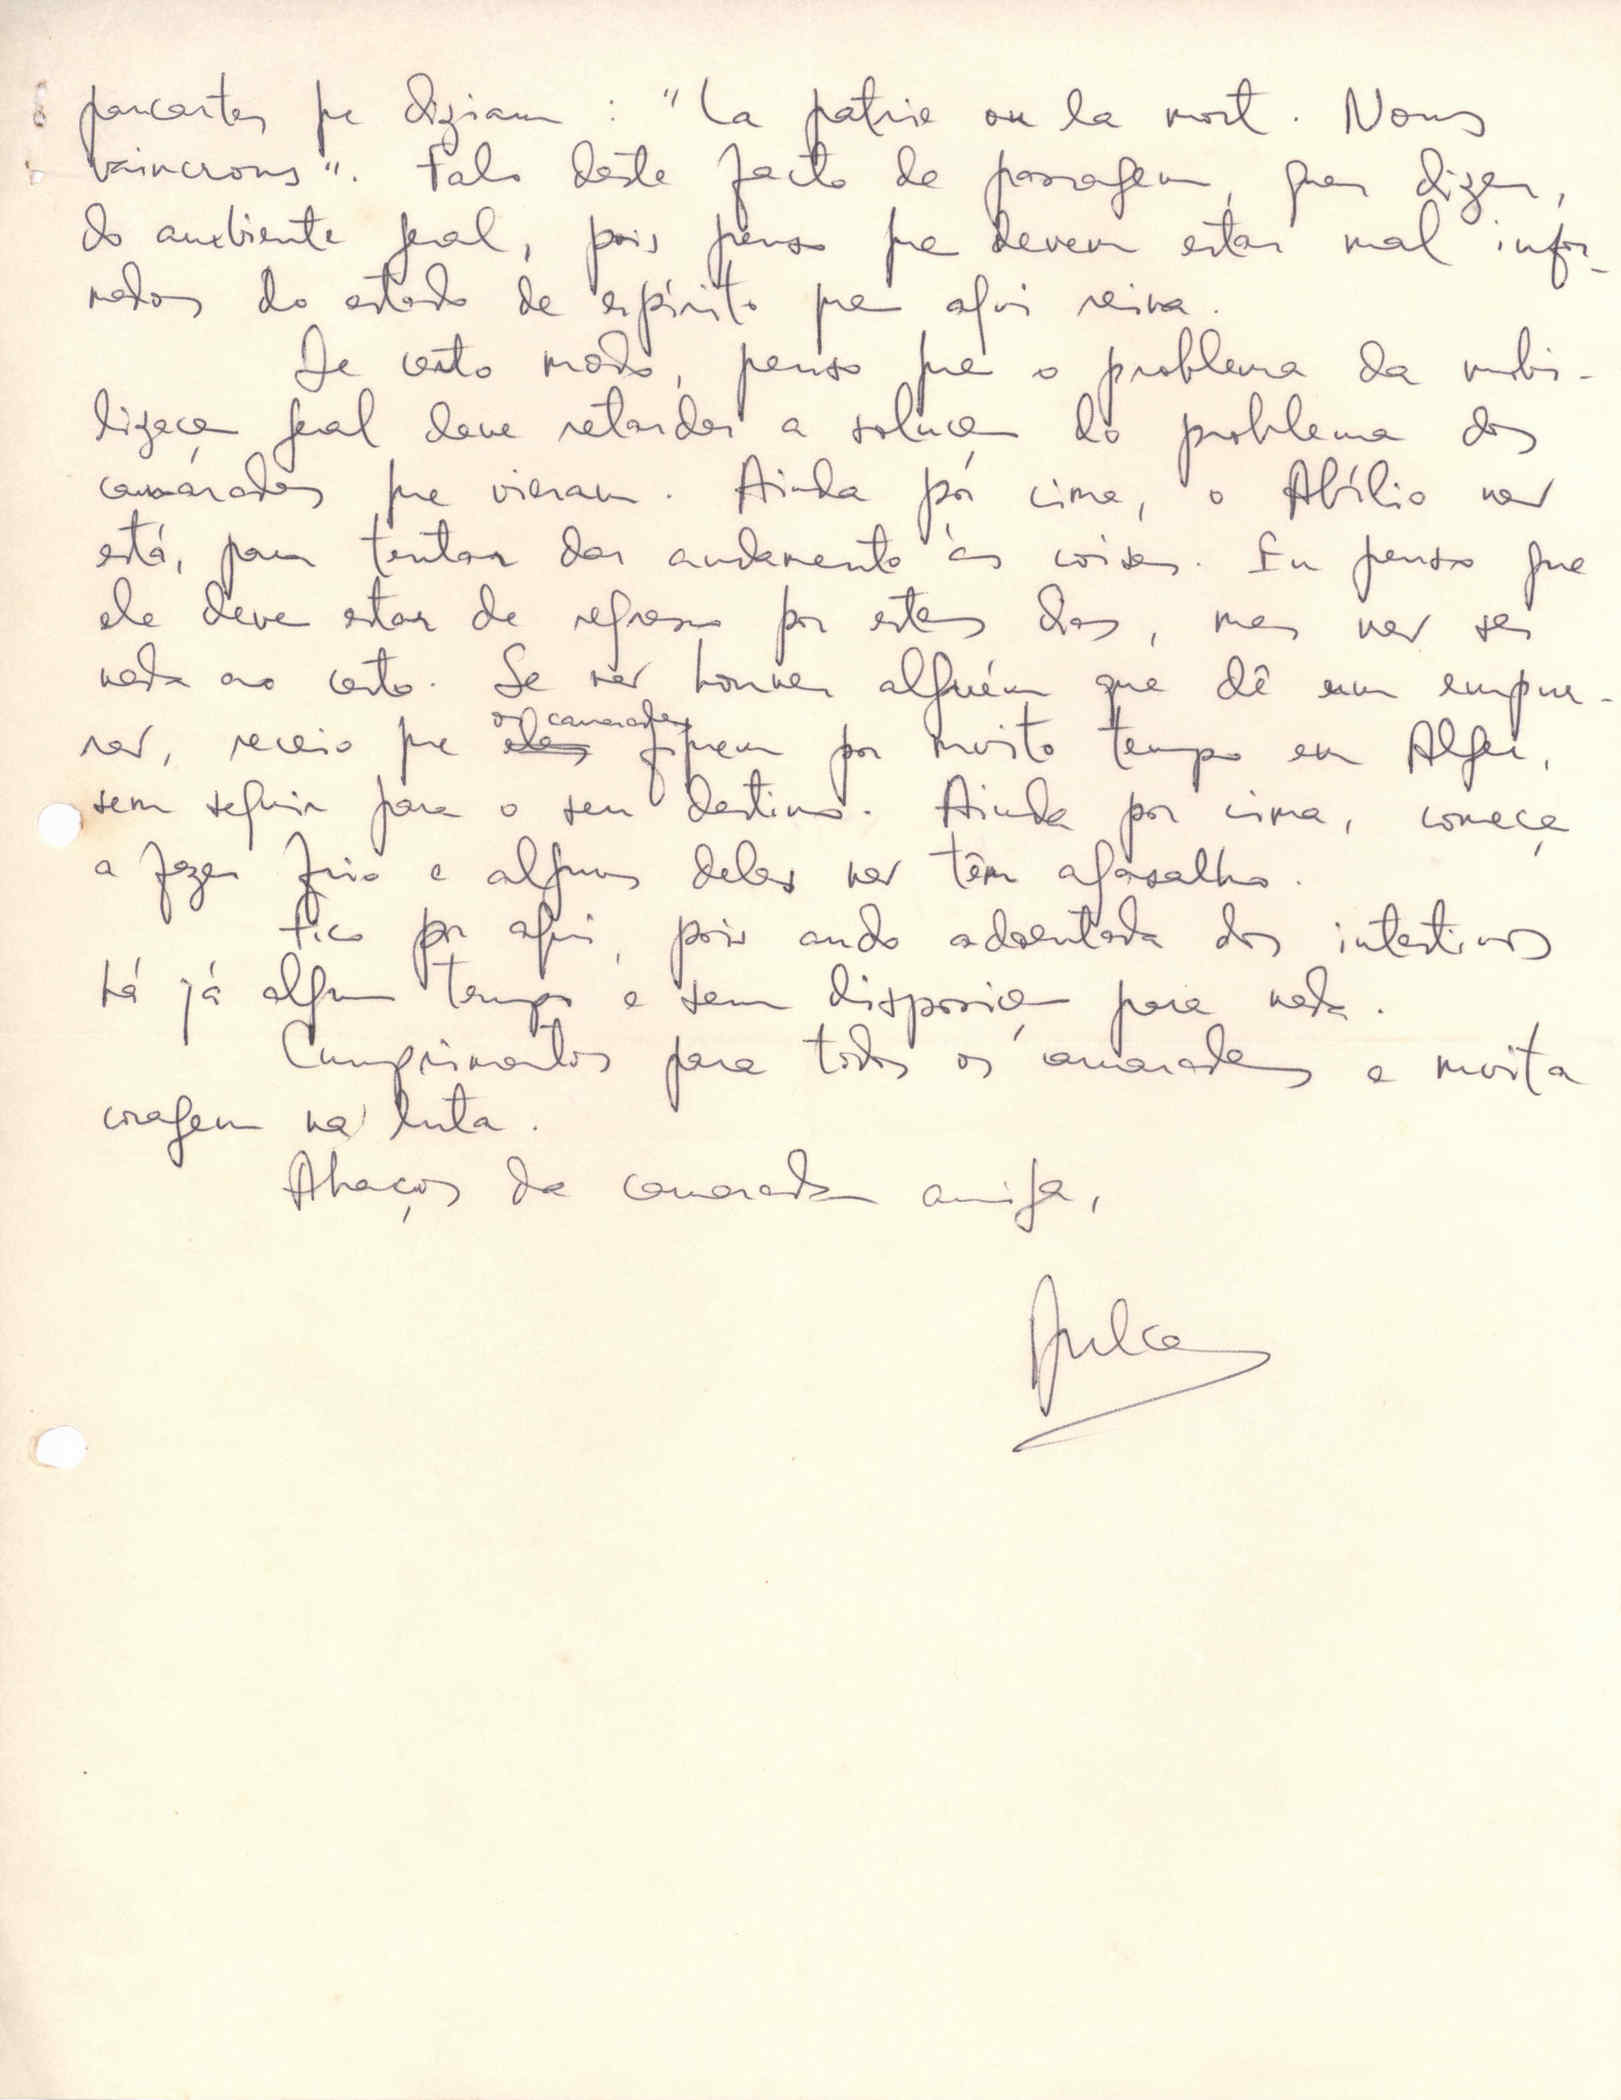 pancartes que diziam : "La patrie ou la mort. Nous
vaincrons". Falo dêste facto de passagem, quer dizer,
do ambiente geral, pois penso que devem estar mal infor-
mados do estado de espírito que aqui reina.
De certo modo, penso que o problema da mobi-
lização geral deve retardar a solução do problema dos
camaradas que vieram. Ainda por cima, o Abílio não
está, para tentar dar andamento às coisas. Eu penso que
ele deve estar de regresso por estes dias, mas não sei
nada ao certo. Se não houver alguém que dê um empur-
rão, receio que os camaradas fiquem por muito tempo em Alger,
sem seguir para o seu destino. Ainda por cima, começa
a fazer frio e alguns deles não têm agasalho.
Fico por aqui, pois ando adoentada dos intestinos
há já algum tempo e sem disposição para nada.
Cumprimentos para todos os camaradas e muita
coragem na luta.
Abraços da camarada amiga,
Dulce